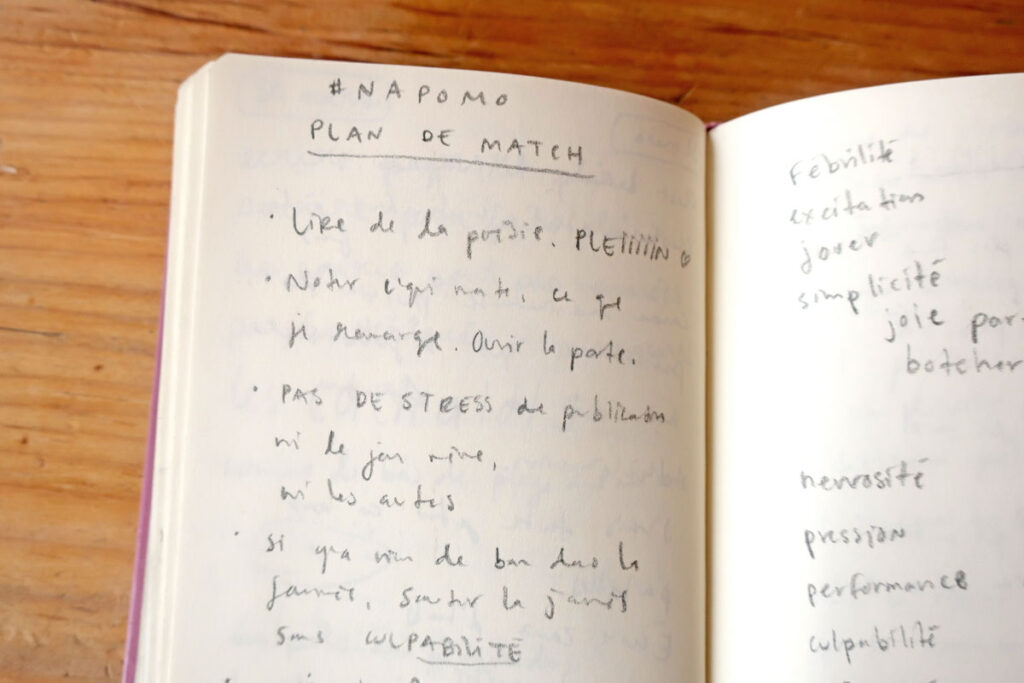 #NAPOMO
PLAN DE MATCH
· Lire de la poésie. PLEIIIIIN ♡
· Noter c'qui reste, ce que
je remarque. Ouvrir la porte.
· PAS DE STRESS de publication
ni le jour même,
ni les autres
· si y'a rien de bon dans la
journée, sauter la journée
sans CULPABILITÉ
Fébrilité
excitation
jouer
simplicité
joie
botcher
nervosité
pression
performance
culpabilité